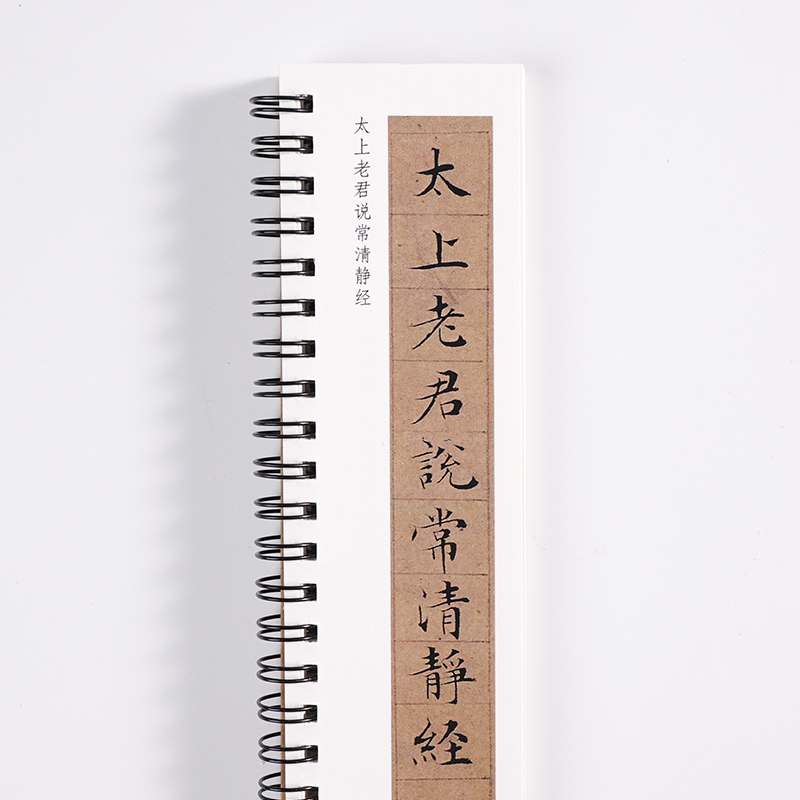 太上老君说常清静经
太上老君說常清靜経